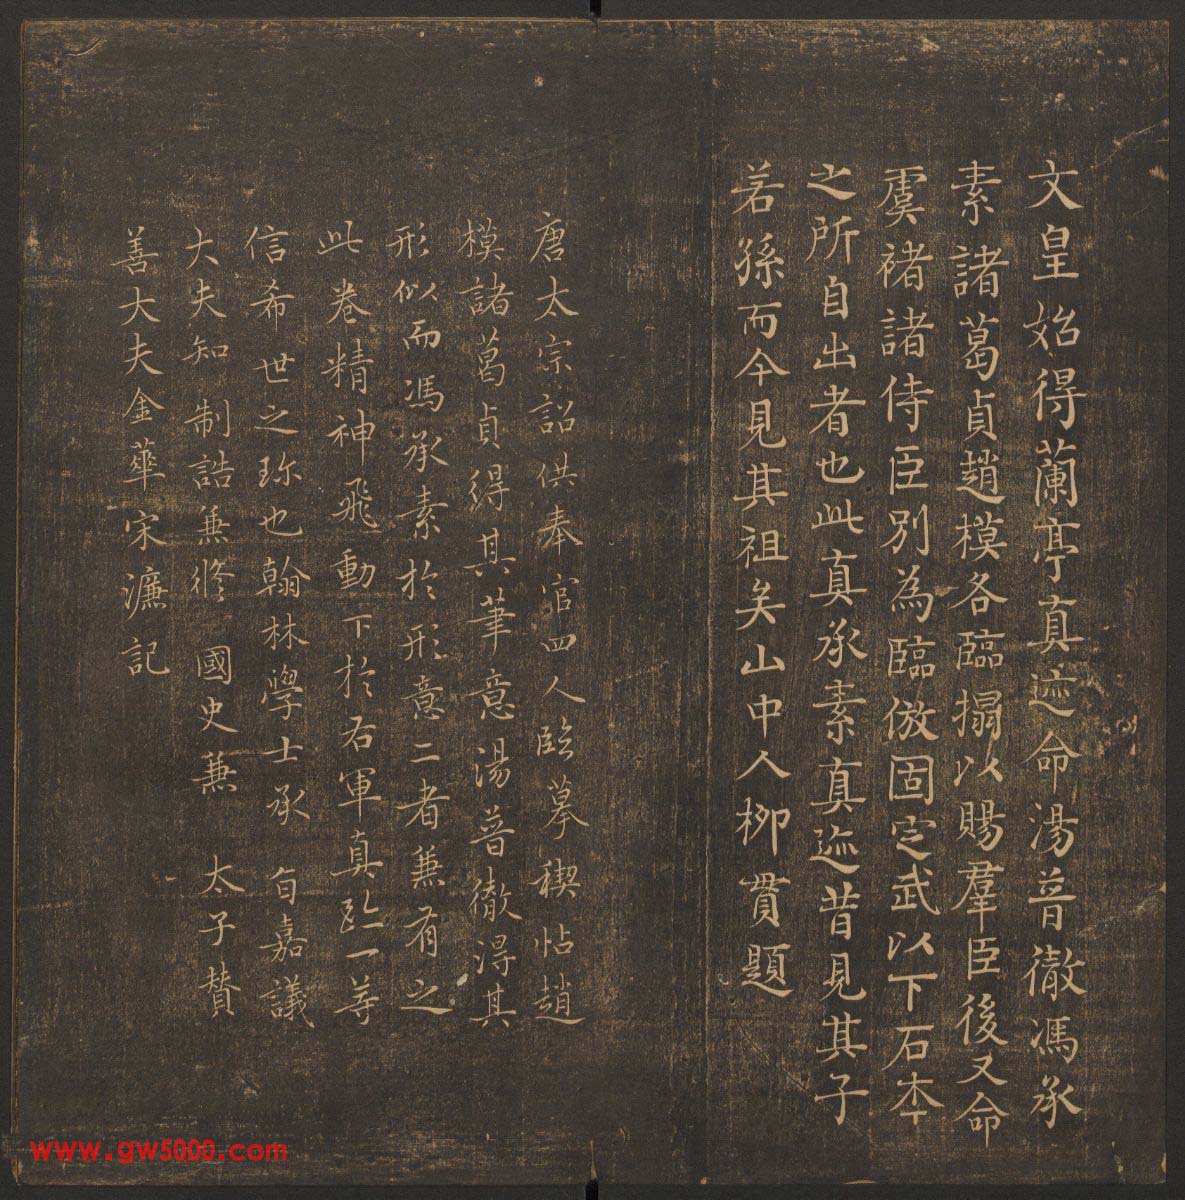 文皇始得蘭亭真迹命湯普徹馮承
素諸葛貞趙模各臨搨以賜羣臣後又命
虞褚諸侍臣別為臨倣固定武以下石本
之所自出者也此真承素真迹昔見其子
若孫而今見其祖矣山中人柳貫題
唐太宗詔供奉官四人臨摹禊帖趙
模諸葛貞得其筆意湯普徹淂其
形似而馮承素於形意二者兼有之
此卷精神飛動下於右軍真跡一等
信希世之珎也翰林學士承旨嘉議
大夫知制誥兼修國史兼太子贊
善大夫金華宋濂記
www.gw5000.com